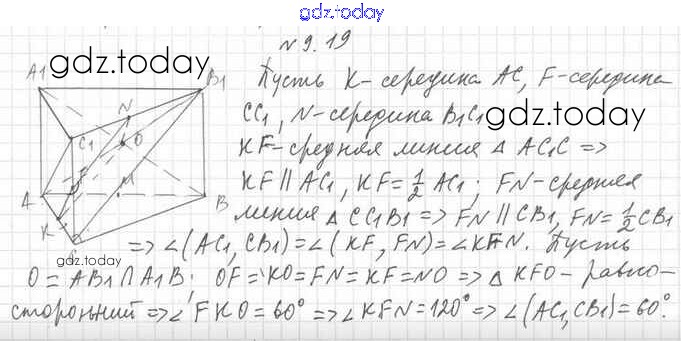 gdz.today
№9.19
gdz.today
gdz.today
A1 B1 N C1 O F A M B K C
Пусть K - середина AC, F - середина
CC1, N - середина B1C1
KF - средняя линия Δ AC1C =>
KF || AC1, KF = 1/2 AC1; FN - средняя
линия Δ CC1B1 => FN || CB1, FN = 1/2 CB1
=> ∠(AC1, CB1) = ∠(KF, FN) = ∠KFN. Пусть
O = AB1 ∩ A1B; OF = KO = FN = KF = NO => Δ KFO - равно-
сторонний => ∠FKO = 60° => ∠KFN = 120° => ∠(AC1, CB1) = 60°.
gdz.today